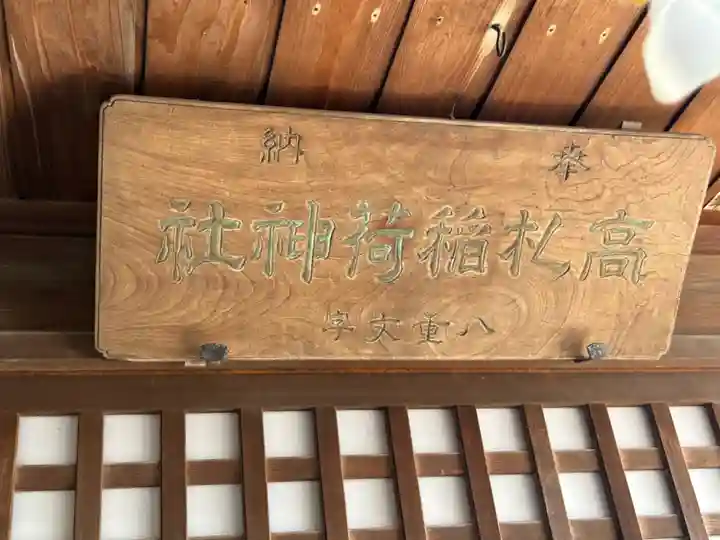 奉納
高札稲荷神社
八重文字